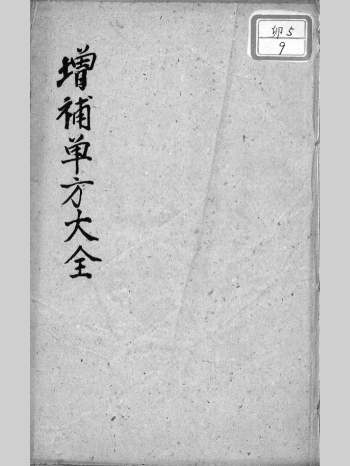 増補単方大全
卯5
9